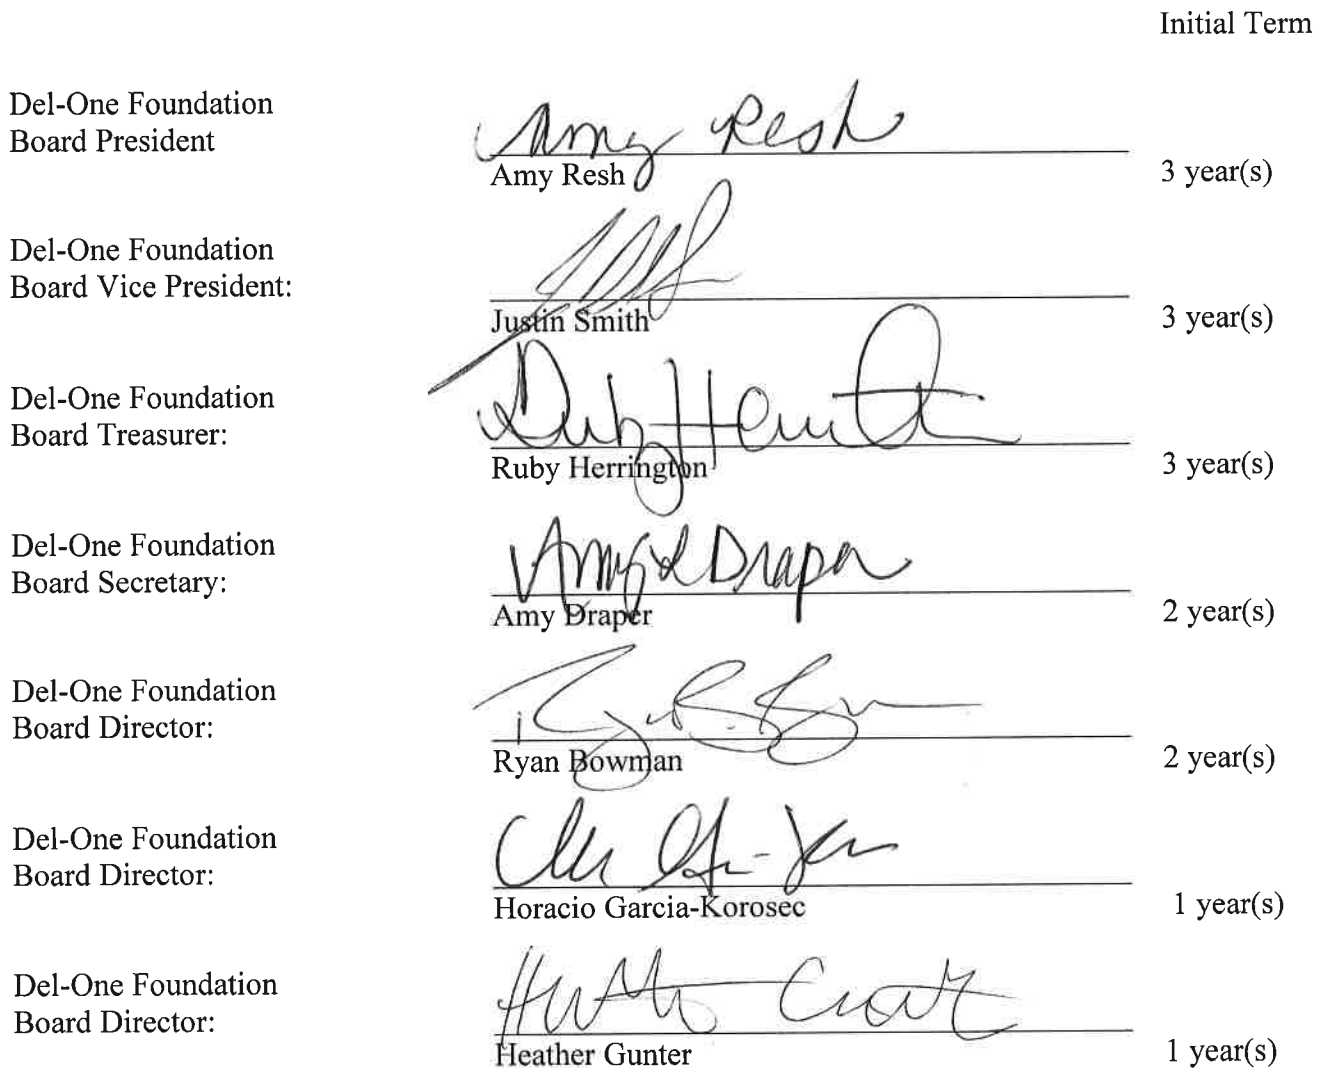 Initial Term
Del-One Foundation
Board President
Amy Resh
Amy Resh
3 year(s)
Del-One Foundation
Board Vice President:
Justin Smith
3 year(s)
Del-One Foundation
Board Treasurer:
Ruby
Ruby Herrington
3 year(s)
Del-One Foundation
Board Secretary:
Amy L Draper
Amy Draper
2 year(s)
Del-One Foundation
Board Director:
Ryan Bowman
2 year(s)
Del-One Foundation
Board Director:
Horacio Garcia-Korosec
1 year(s)
Del-One Foundation
Board Director:
Heather Gunter
1 year(s)